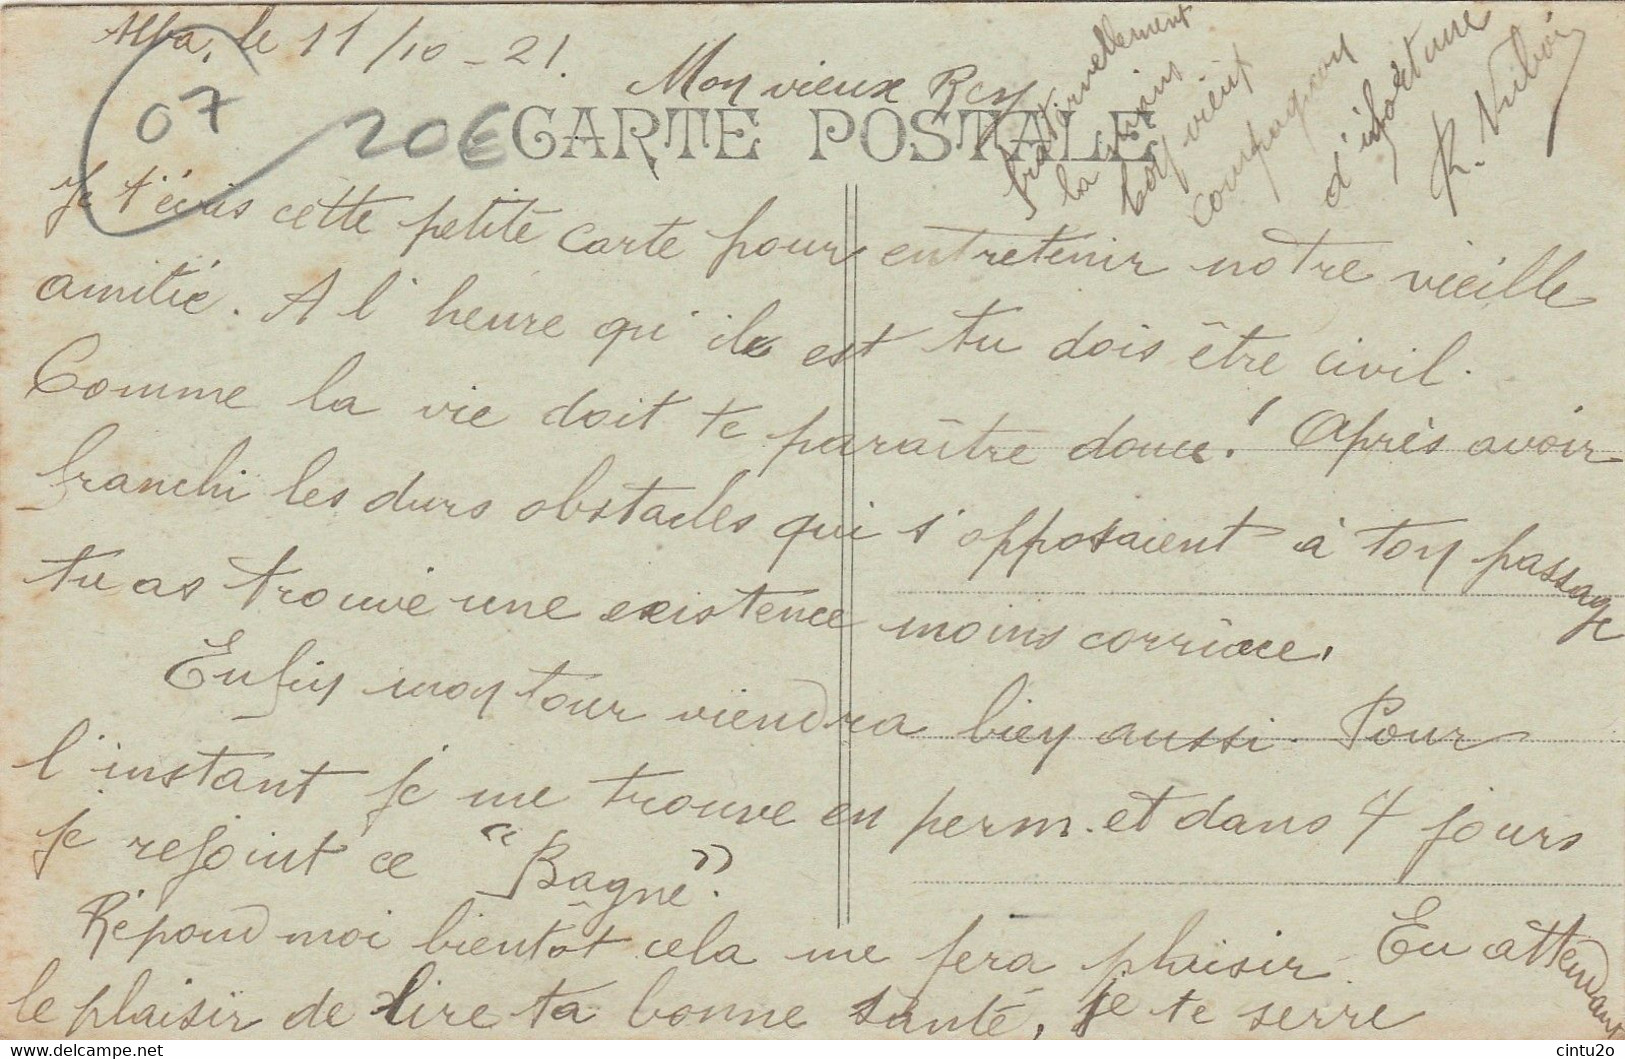 Alba, le 11/10-21.
Mon vieux Rey
07
20€
CARTE POSTALE
Je t'écris cette petite carte pour entretenir notre vieille
amitié. A l'heure qu'il est tu dois être civil.
Comme la vie doit te paraître douce! Après avoir
franchi les durs obstacles qui s'opposaient à ton passage
tu as trouvé une existence moins corriace.
Enfin mon tour viendra bien aussi. Pour
l'instant je me trouve en perm. et dans 4 jours
je rejoint ce "Bagne".
Répond moi bientôt cela me fera plaisir. En attendant
le plaisir de lire ta bonne santé, je te serre
fraternellement
la main
ton vieux
compagnon
d'infortune
R.
cintu2o